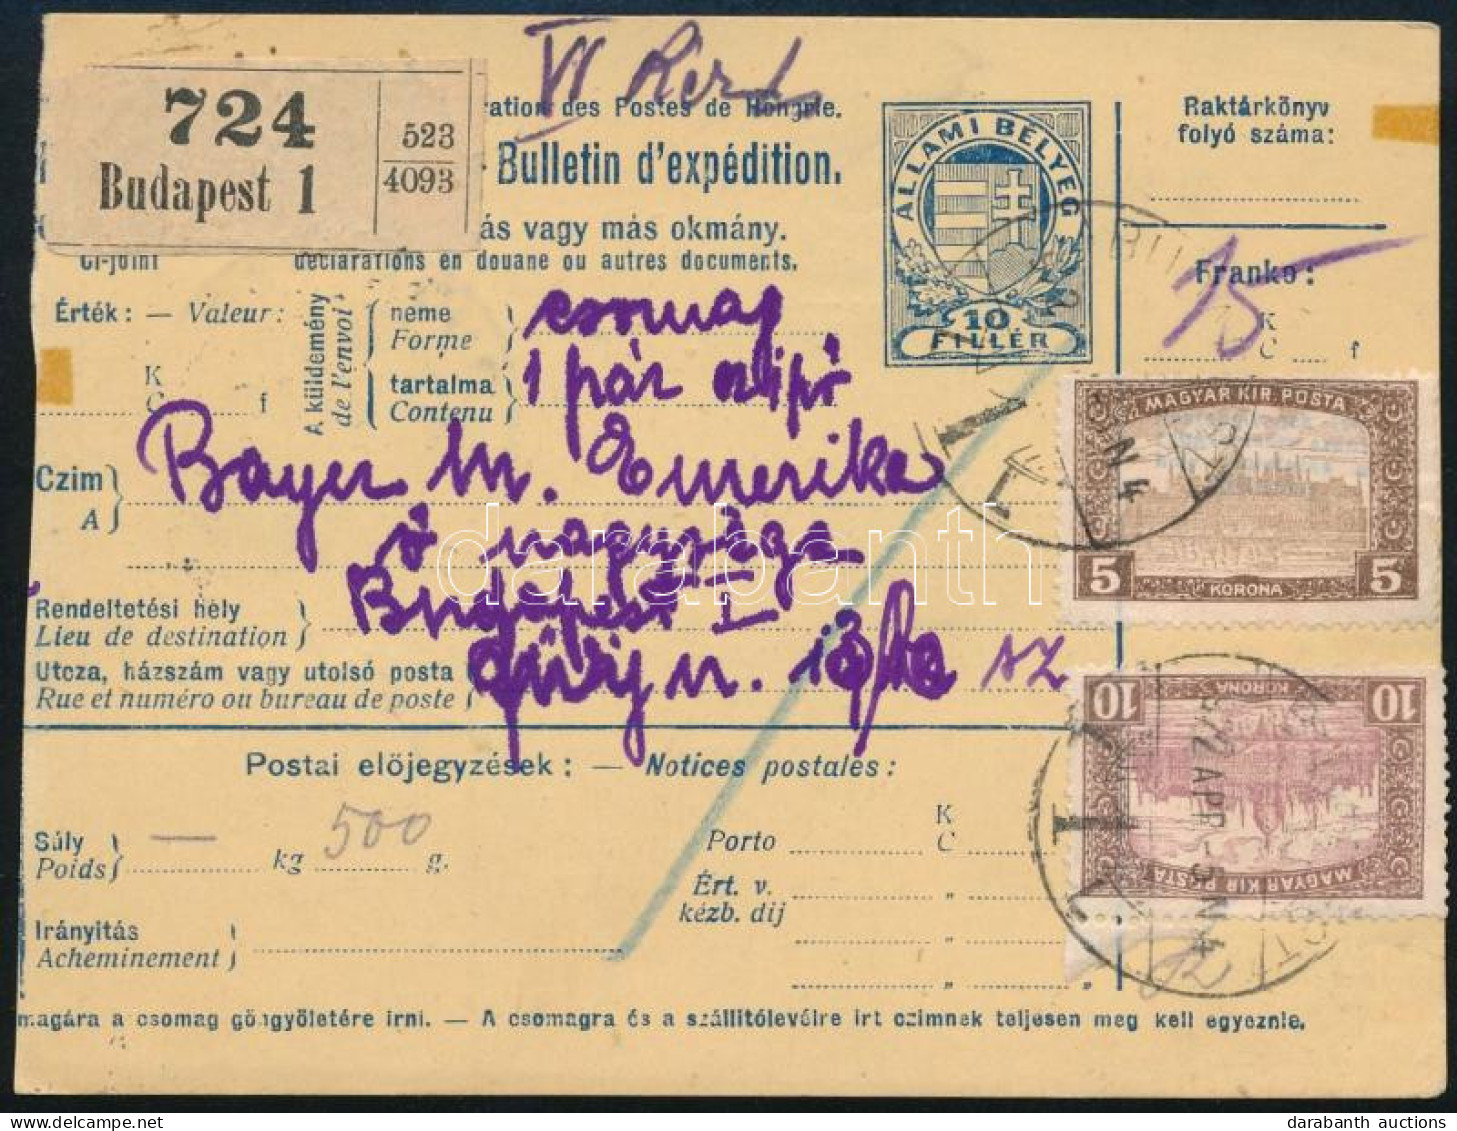 VI Ker
724
Budapest 1
523
4093
ration des Postes de Hongrie.
Bulletin d'expédition.
ás vagy más okmány.
Ci-joint
déclarations en douane ou autres documents.
ÁLLAMI BÉLYEG
10
FILLÉR
Raktárkönyv
folyó száma:
Franko:
15
K
C
f
Érték: — Valeur:
K
C
f
A küldemény
de l'envoi
neme
Forme
csomag
tartalma
Contenu
1 pár czipő
MAGYAR KIR. POSTA
5
KORONA
5
Czim
A
Bayer M. Emerika
ő nagysága
Rendeltetési hely
Lieu de destination
Budapest I
Utcza, házszám vagy utolsó posta
Rue et numéro ou bureau de poste
u. 13/
10
KORONA
10
MAGYAR KIR. POSTA
922 APR. -3 N 4
N 4
Postai előjegyzések: — Notices postales:
Súly
Poids
—
kg
500
g.
Porto
K
C
Ért. v.
kézb. díj
Irányítás
Acheminement
magára a csomag göngyöletére írni. — A csomagra és a szállítólevélre írt czimnek teljesen meg kell egyeznie.
darabanth
darabanth auctions